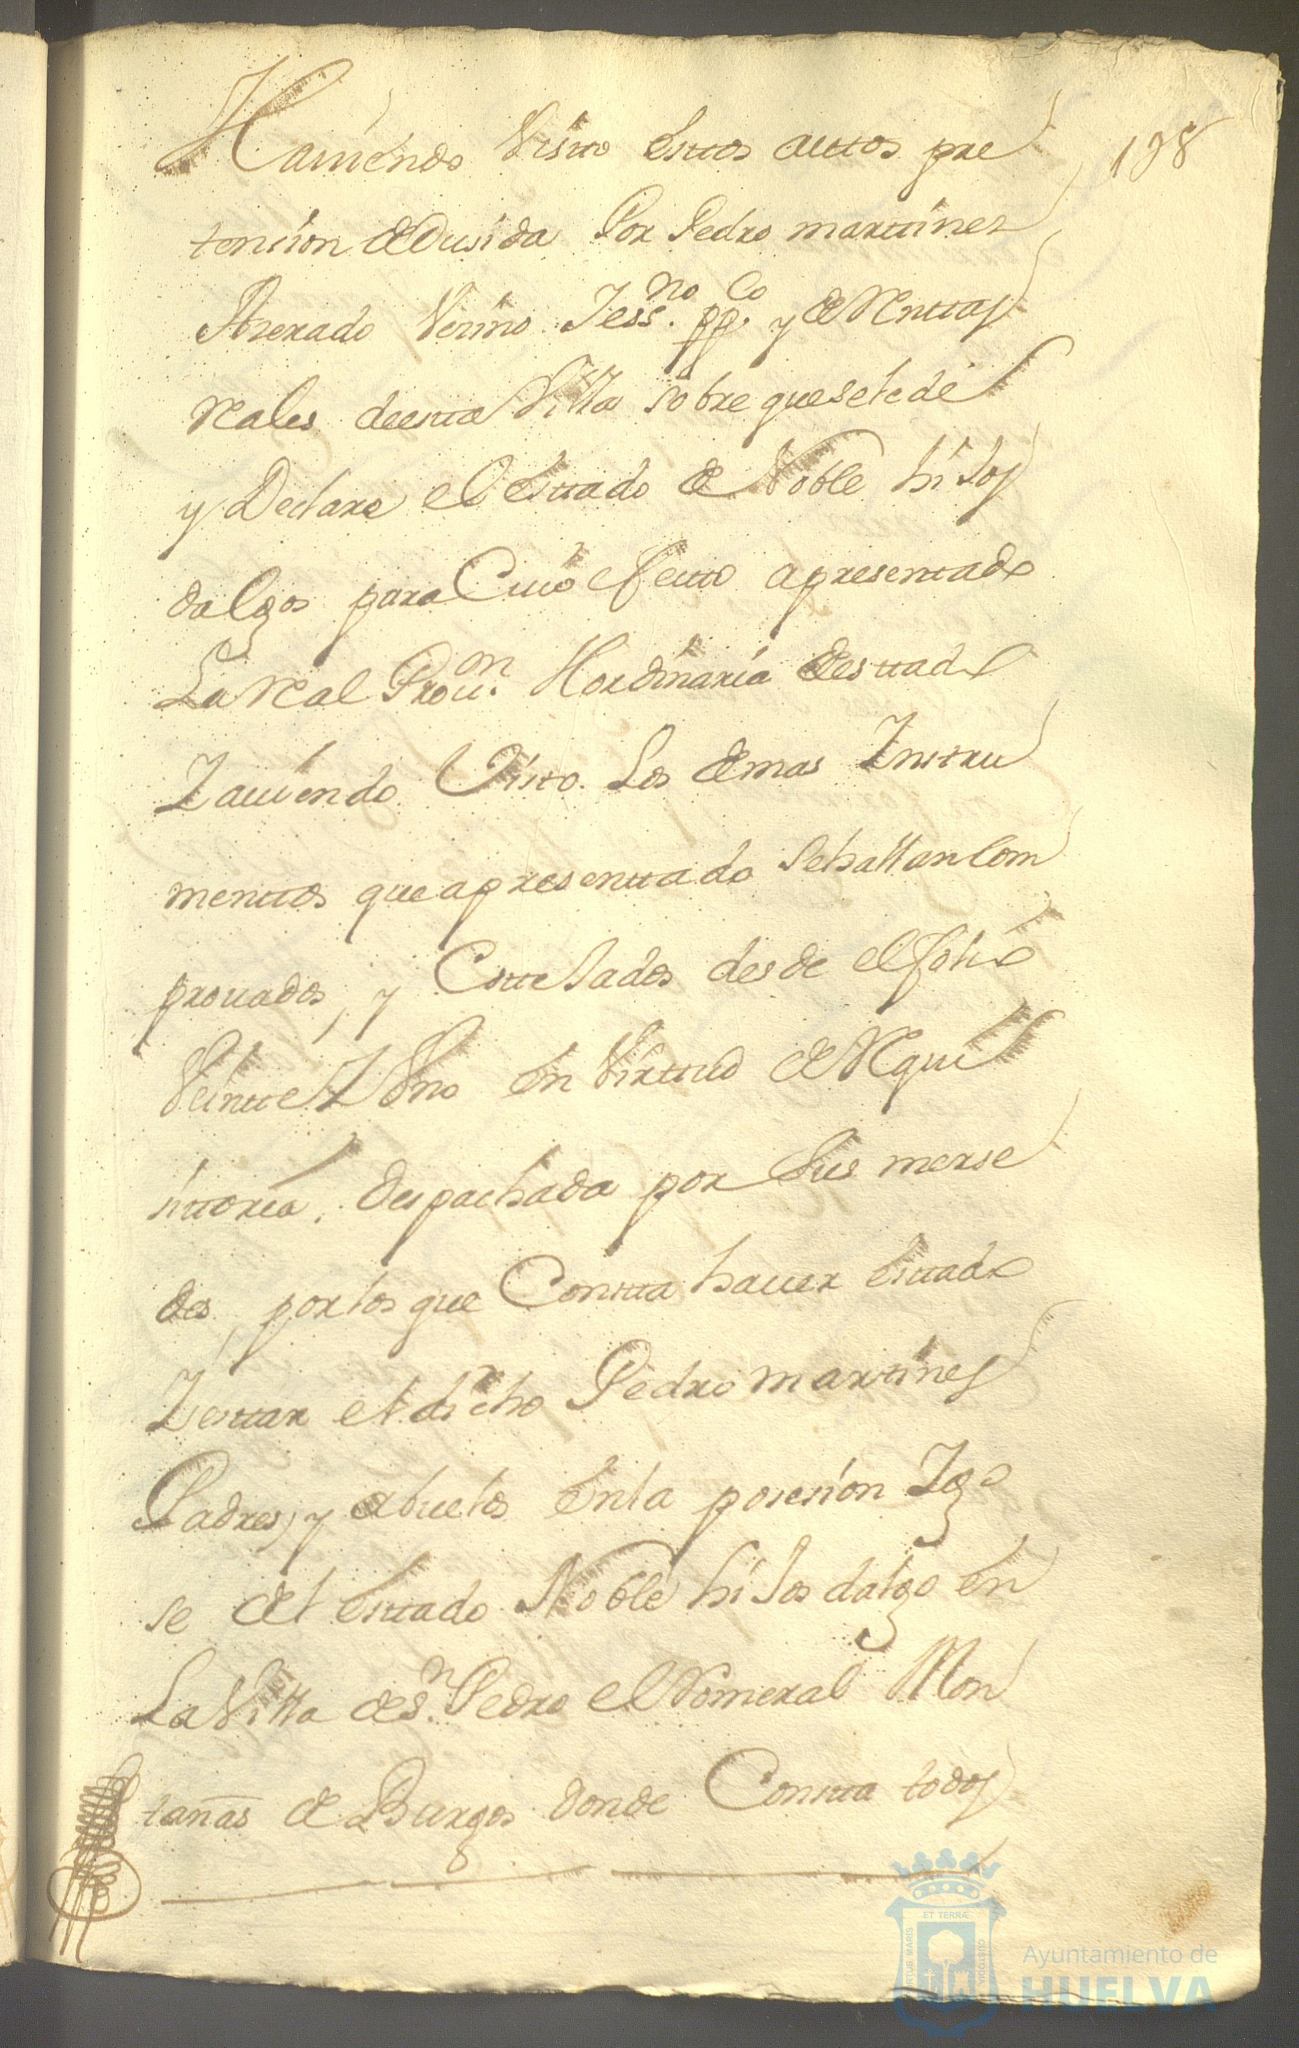 Hauiendo Visto estos auttos pre
198
tencion dedusida Por Pedro marttines
Vecino Jess.no pp.co y de Renttas
Reales deesta Villa sobre quesele dé
y Declare el esttado de Noble hisos
dalgos para Cuio efecto apresentado
La Real Prou.on Hordinaria desttado
Y auiendo Visto Los demas Instru
menttos que apresenttado sehallan Com
prouados, y Cottesados desde el folio
Veintte Y Vno en Virttud de Requi
sittoria, despachada por sus merse
des, por los que Constta hauer esttado
Y esttar el dicho Pedro marttines
Padres, y abuelos en la posesion Y go
se del esttado Noble hisos dalgo en
La Villa de S.n Pedro el Romeral Mon
tañas de Burgos donde Constta todos
ET TERRÆ
PORTUS MARIS
CUSTODIA
Ayuntamiento de
HUELVA